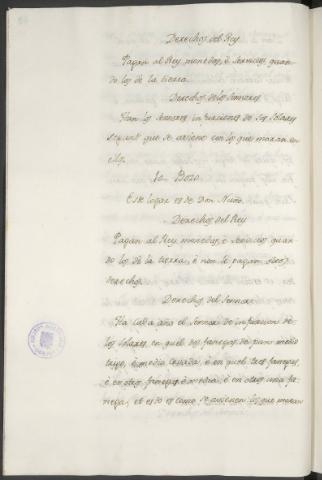 Derechos del Rey
Pagan al Rey monedas, è servicios quan-
do los dà la tierra.
Derechos de los Sennores
Han los Sennores infurciones de sus solares
segunt que se avienen con los que moran en
ellos.
Bozo.
Este logar es de Don Nuño.
Derechos del Rey
Pagan al Rey monedas, è servicios quan-
do los dà la tierra, è non le pagan otros
derechos.
Derechos del Sennor
Ha cada año el Sennor de infurcion de
los solares, en quales dos fanegas de pan medio
trigo, è medio cevada, è en quales tres fanegas,
è en otros fanega è media, è en otros una fa-
nega, et esto es como se avienen los que moran